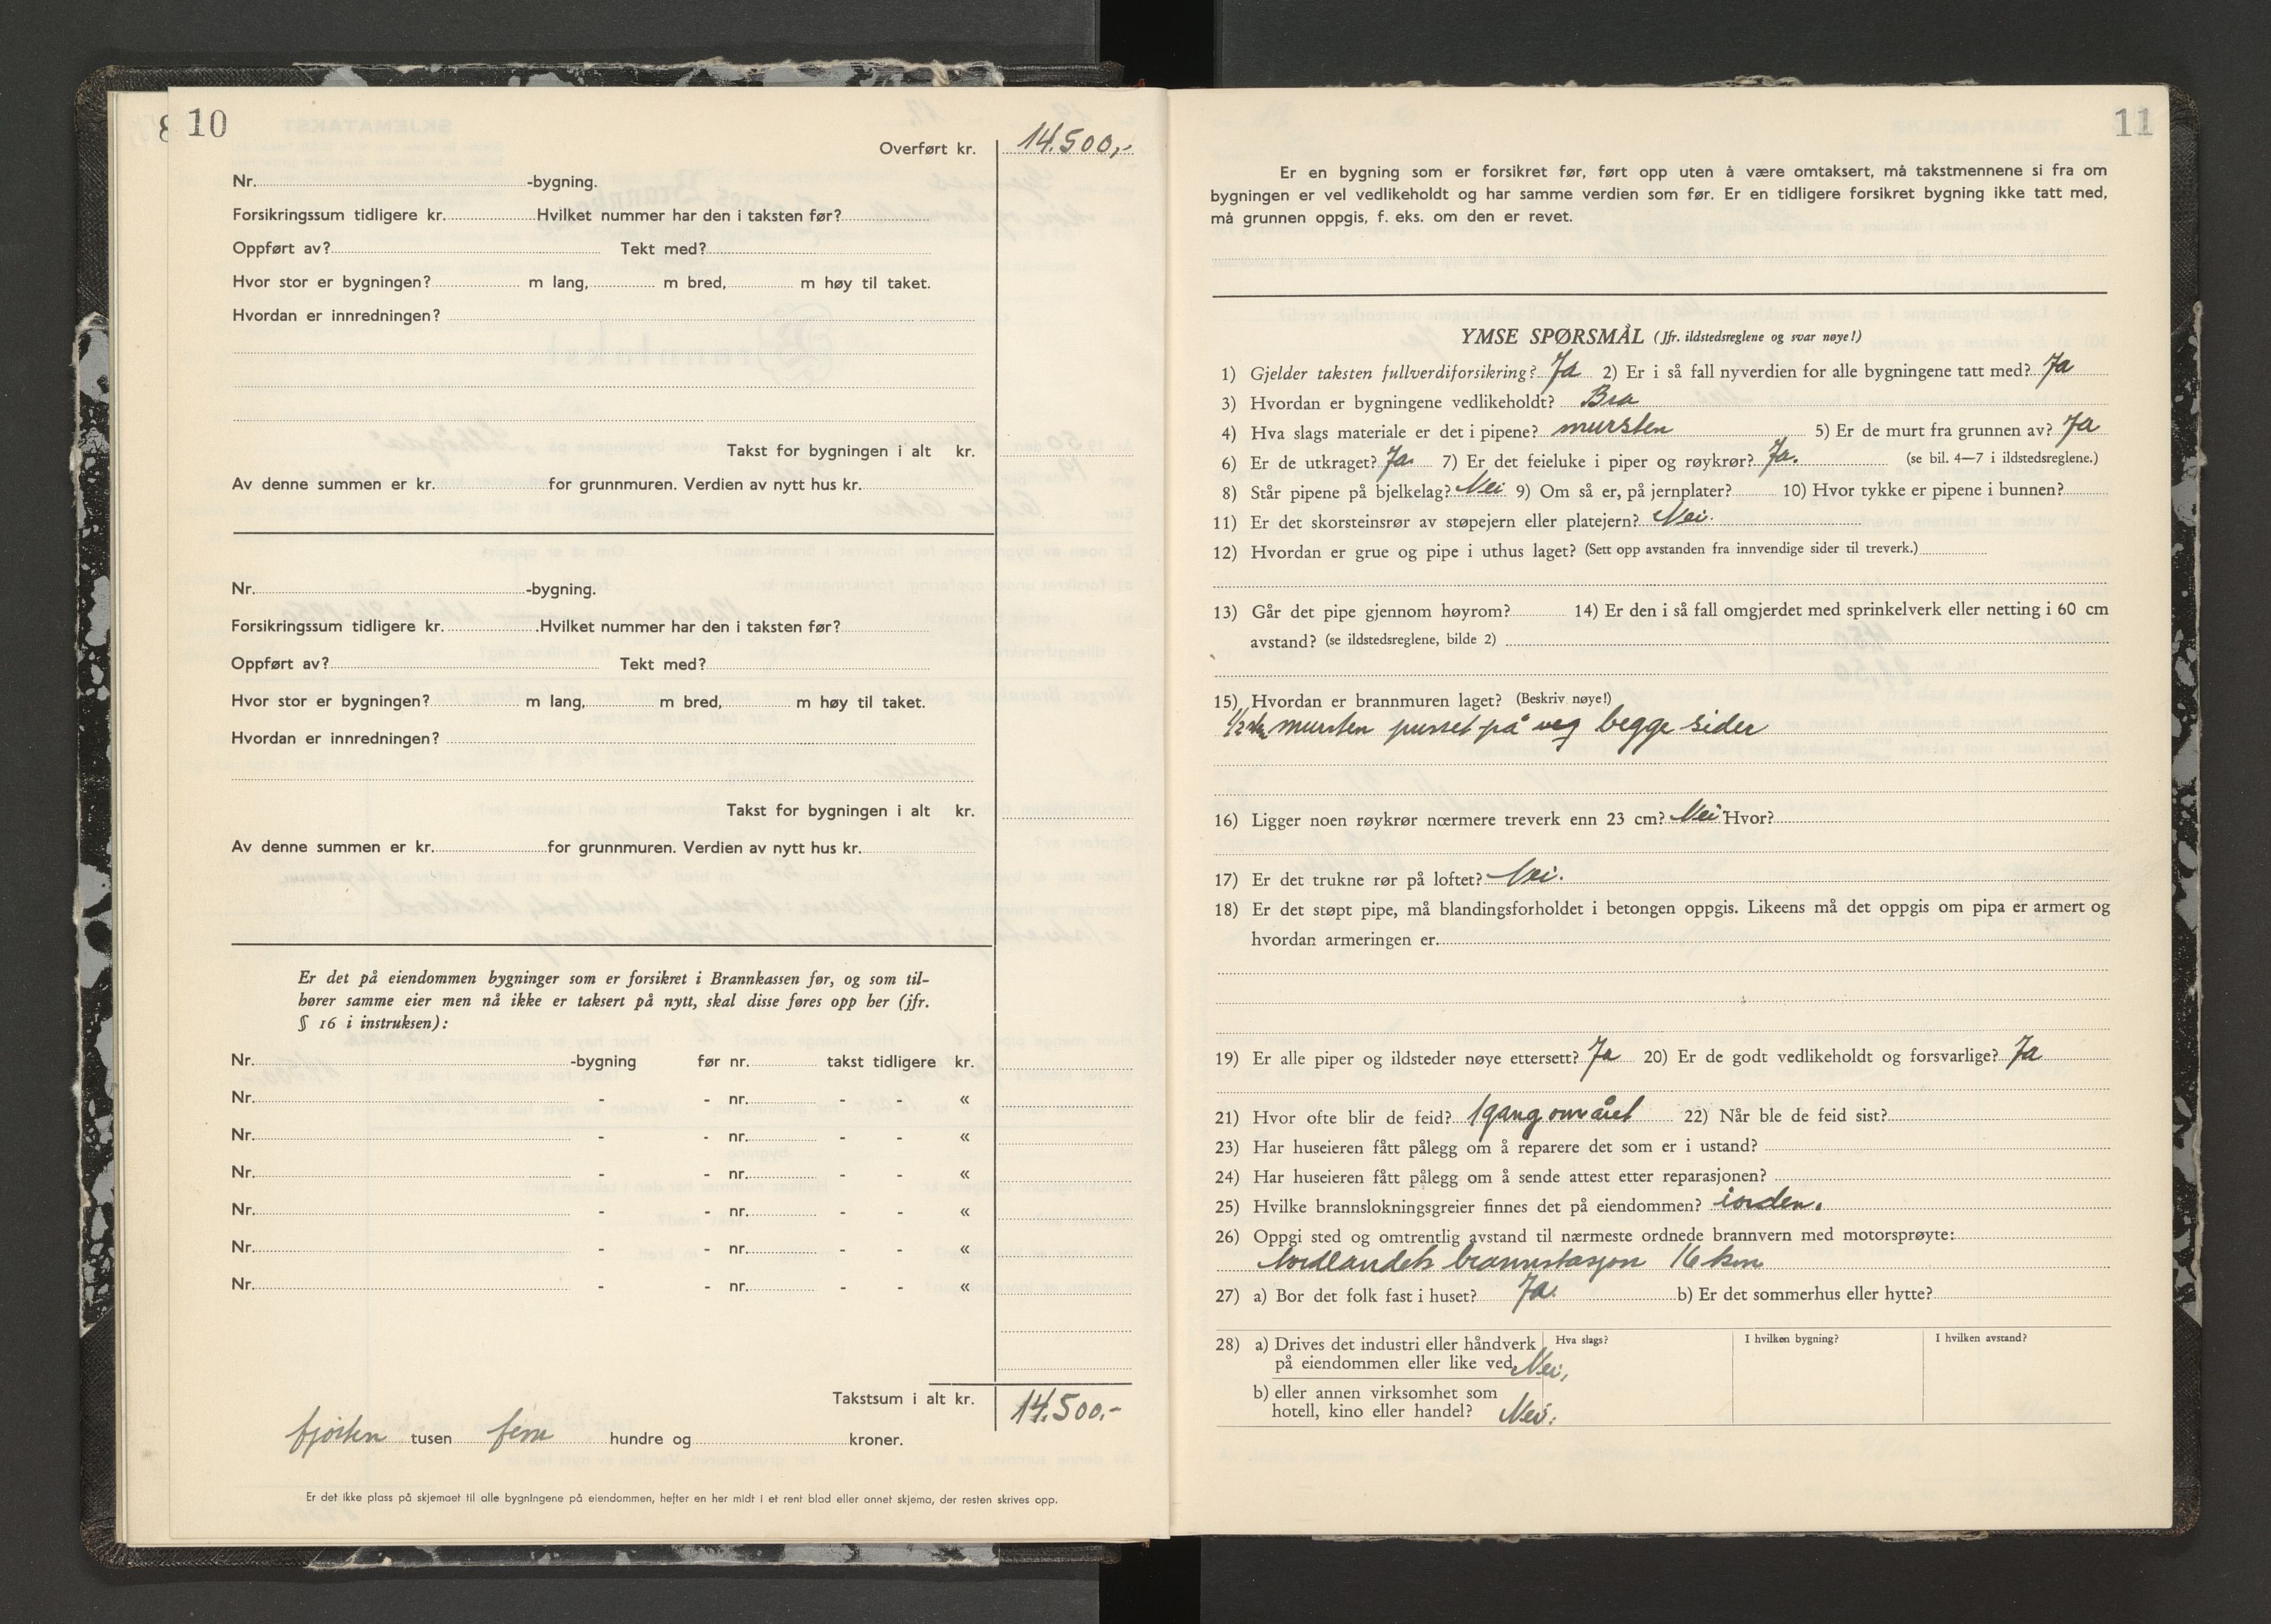 10
Overført kr. 14.500,-
Nr. -bygning.
Forsikringssum tidligere kr. Hvilket nummer har den i taksten før?
Oppført av? Tekt med?
Hvor stor er bygningen? m lang, m bred, m høy til taket.
Hvordan er innredningen?
Takst for bygningen i alt kr.
Av denne summen er kr. for grunnmuren. Verdien av nytt hus kr.
Nr. -bygning.
Forsikringssum tidligere kr. Hvilket nummer har den i taksten før?
Oppført av? Tekt med?
Hvor stor er bygningen? m lang, m bred, m høy til taket.
Hvordan er innredningen?
Takst for bygningen i alt kr.
Av denne summen er kr. for grunnmuren. Verdien av nytt hus kr.
Er det på eiendommen bygninger som er forsikret i Brannkassen før, og som til-
hører samme eier men nå ikke er taksert på nytt, skal disse føres opp her (jfr.
§ 16 i instruksen):
Nr. -bygning før nr. takst tidligere kr.
Nr. - - nr. - - «
Nr. - - nr. - - «
Nr. - - nr. - - «
Nr. - - nr. - - «
Nr. - - nr. - - «
Nr. - - nr. - - «
Takstsum i alt kr. 14.500.-
fjorten tusen fem hundre og kroner.
Er det ikke plass på skjemaet til alle bygningene på eiendommen, hefter en her midt i et rent blad eller annet skjema, der resten skrives opp.
11
Er en bygning som er forsikret før, ført opp uten å være omtaksert, må takstmennene si fra om
bygningen er vel vedlikeholdt og har samme verdien som før. Er en tidligere forsikret bygning ikke tatt med,
må grunnen oppgis, f. eks. om den er revet.
YMSE SPØRSMÅL (Jfr. ildstedsreglene og svar nøye!)
1) Gjelder taksten fullverdiforsikring? Ja 2) Er i så fall nyverdien for alle bygningene tatt med? Ja
3) Hvordan er bygningene vedlikeholdt? Bra
4) Hva slags materiale er det i pipene? mursten 5) Er de murt fra grunnen av? Ja
6) Er de utkraget? Ja. 7) Er det feieluke i piper og røykrør? Ja. (se bil. 4—7 i ildstedsreglene.)
8) Står pipene på bjelkelag? Nei 9) Om så er, på jernplater? 10) Hvor tykke er pipene i bunnen?
11) Er det skorsteinsrør av støpejern eller platejern? Nei.
12) Hvordan er grue og pipe i uthus laget? (Sett opp avstanden fra innvendige sider til treverk.)
13) Går det pipe gjennom høyrom? 14) Er den i så fall omgjerdet med sprinkelverk eller netting i 60 cm
avstand? (se ildstedsreglene, bilde 2)
15) Hvordan er brannmuren laget? (Beskriv nøye!)
1/2 mursten pusset på begge sider
16) Ligger noen røykrør nærmere treverk enn 23 cm? Nei Hvor?
17) Er det trukne rør på loftet? Nei.
18) Er det støpt pipe, må blandingsforholdet i betongen oppgis. Likeens må det oppgis om pipa er armert og
hvordan armeringen er.
19) Er alle piper og ildsteder nøye ettersett? Ja 20) Er de godt vedlikeholdt og forsvarlige? Ja
21) Hvor ofte blir de feid? 1 gang om året 22) Når ble de feid sist?
23) Har huseieren fått pålegg om å reparere det som er i ustand?
24) Har huseieren fått pålegg om å sende attest etter reparasjonen?
25) Hvilke brannslokningsgreier finnes det på eiendommen? iorden.
26) Oppgi sted og omtrentlig avstand til nærmeste ordnede brannvern med motorsprøyte:
Nordlandets brannstasjon 16 km
27) a) Bor det folk fast i huset? Ja. b) Er det sommerhus eller hytte?
28) a) Drives det industri eller håndverk Hva slags? I hvilken bygning? I hvilken avstand?
på eiendommen eller like ved Nei,
b) eller annen virksomhet som
hotell, kino eller handel? Nei.